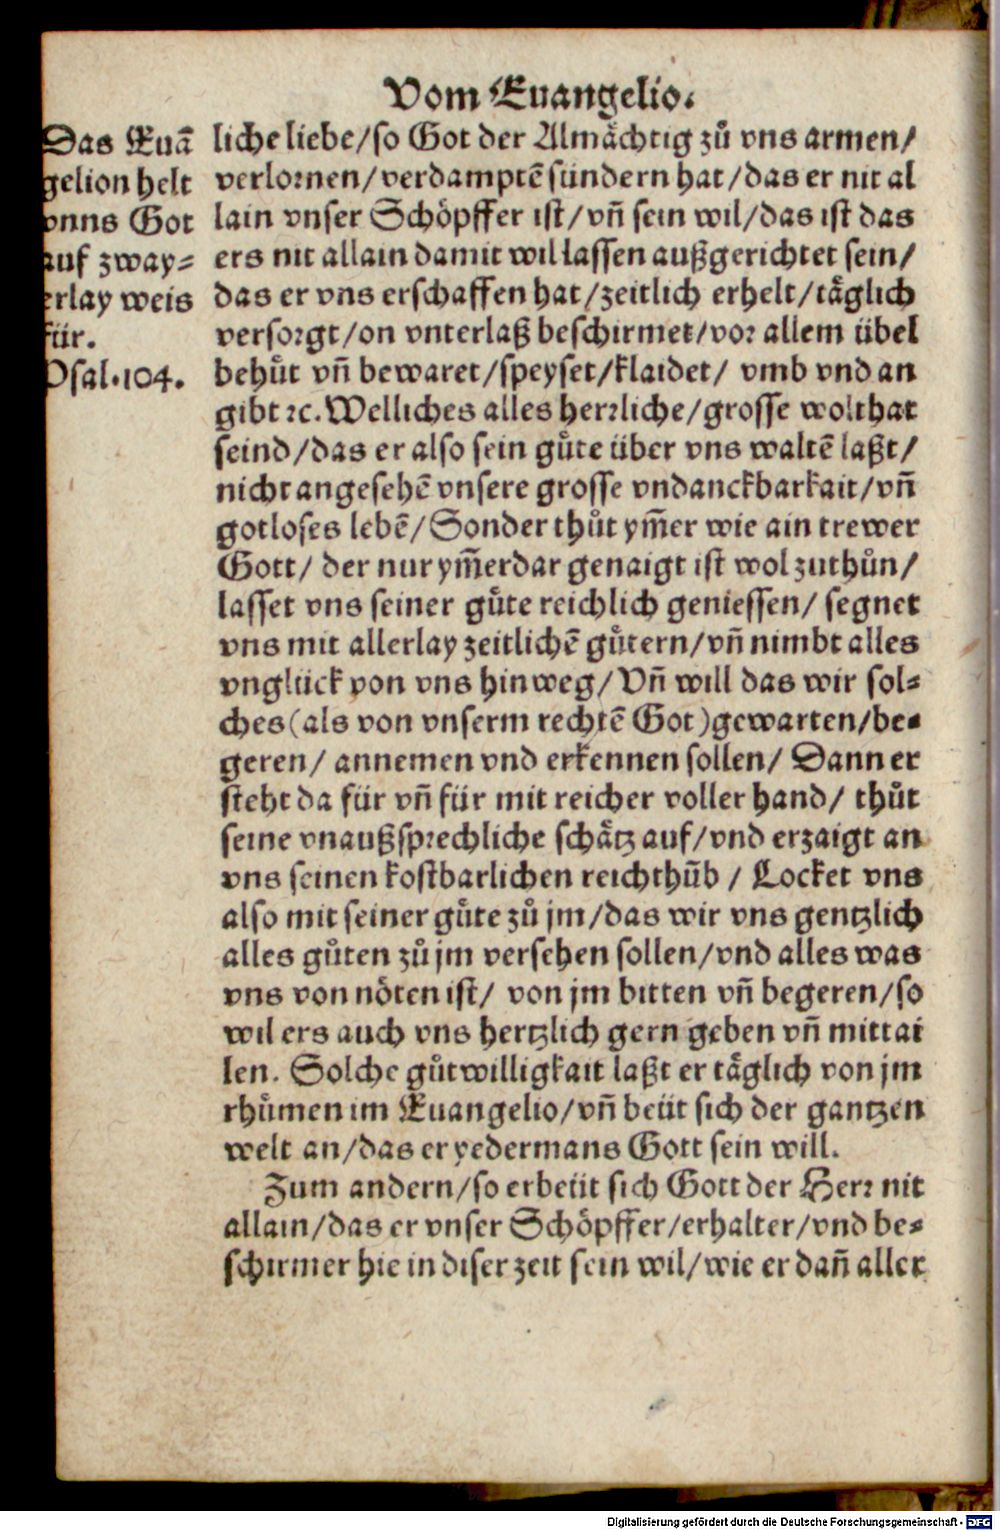 Vom Euangelio.
Das Euā
gelion helt
vnns Got
auf zway⸗
erlay weis
für.
Psal.104.
liche liebe/so Got der Almåchtig zů vns armen/
verlornen/verdamptē sündern hat/das er nit al
lain vnser Schöpffer ist/vñ sein wil/das ist das
ers nit allain damit wil lassen außgerichtet sein/
das er vns erschaffen hat/zeitlich erhelt/tåglich
versorgt/on vnterlaß beschirmet/vor allem übel
behůt vñ bewaret/speyset/klaidet/ vmb vnd an
gibt ꝛc. Welliches alles herrliche/grosse wolthat
seind/das er also sein gůte über vns waltē laßt/
nicht angesehē vnsere grosse vndanckbarkait/vñ
gotloses lebē/Sonder thůt ym̄er wie ain trewer
Gott/ der nur ym̄erdar genaigt ist wol zuthůn/
lasset vns seiner gůte reichlich geniessen/ segnet
vns mit allerlay zeitlichē gůtern/vñ nimbt alles
vnglück von vns hinweg/Vñ will das wir sol⸗
ches(als von vnserm rechtē Got)gewarten/be⸗
geren/ annemen vnd erkennen sollen/ Dann er
steht da für vñ für mit reicher voller hand/ thůt
seine vnaußsprechliche schåtz auf/vnd erzaigt an
vns seinen kostbarlichen reichthūb / Locket vns
also mit seiner gůte zů jm/das wir vns gentzlich
alles gůten zů jm versehen sollen/vnd alles was
vns von nöten ist/ von jm bitten vñ begeren/so
wil ers auch vns hertzlich gern geben vñ mittai
len. Solche gůtwilligkait laßt er tåglich von jm
rhůmen im Euangelio/vñ beüt sich der gantzen
welt an/das er yedermans Gott sein will.
Zum andern/so erbeüt sich Gott der Herr nit
allain/das er vnser Schöpffer/erhalter/vnd be⸗
schirmer hie in diser zeit sein wil/wie er dañ aller
Digitalisierung gefördert durch die Deutsche Forschungsgemeinschaft - DFG